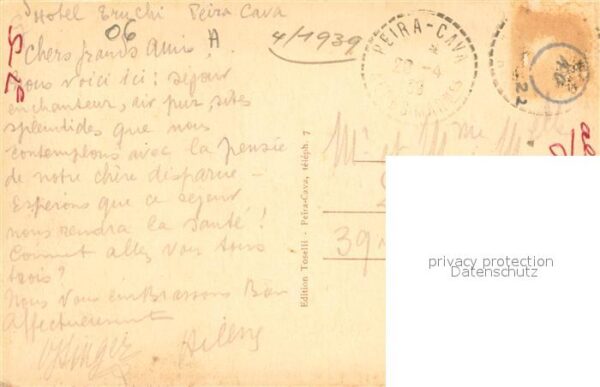 Hotel Peira Cava
06
A
4/1939
Chers grands Amis!
Nous voici ici: séjour
enchanteur, air pur, sites
splendides que nous
contemplons avec la pensée
de notre chère disparue -
Esperons que ce sejour
nous rendra la santé!
Comment allez vous tous
trois?
Nous Vous embrassons Bien
Affectueusement
Hélène
PEIRA-CAVA
Edition Toselli - Peira-Cava, téléph. 7
Mr et Mme
39
privacy protection
Datenschutz